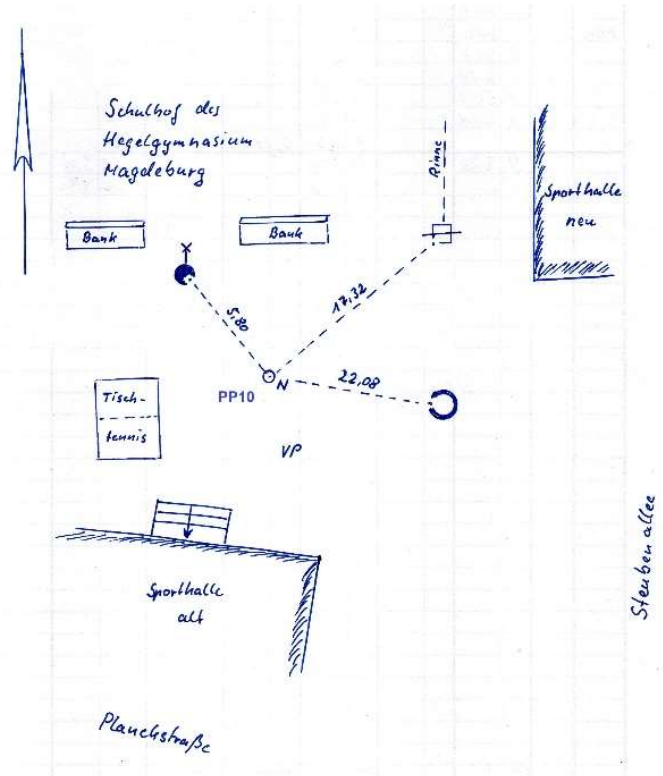 Schulhof des
Hegelgymnasium
Magdeburg
Rinne
Sporthalle
neu
Bank
Bank
5,80
17,32
22,08
N
PP10
Tisch-
tennis
VP
Sporthalle
alt
Steubenallee
Planckstraße